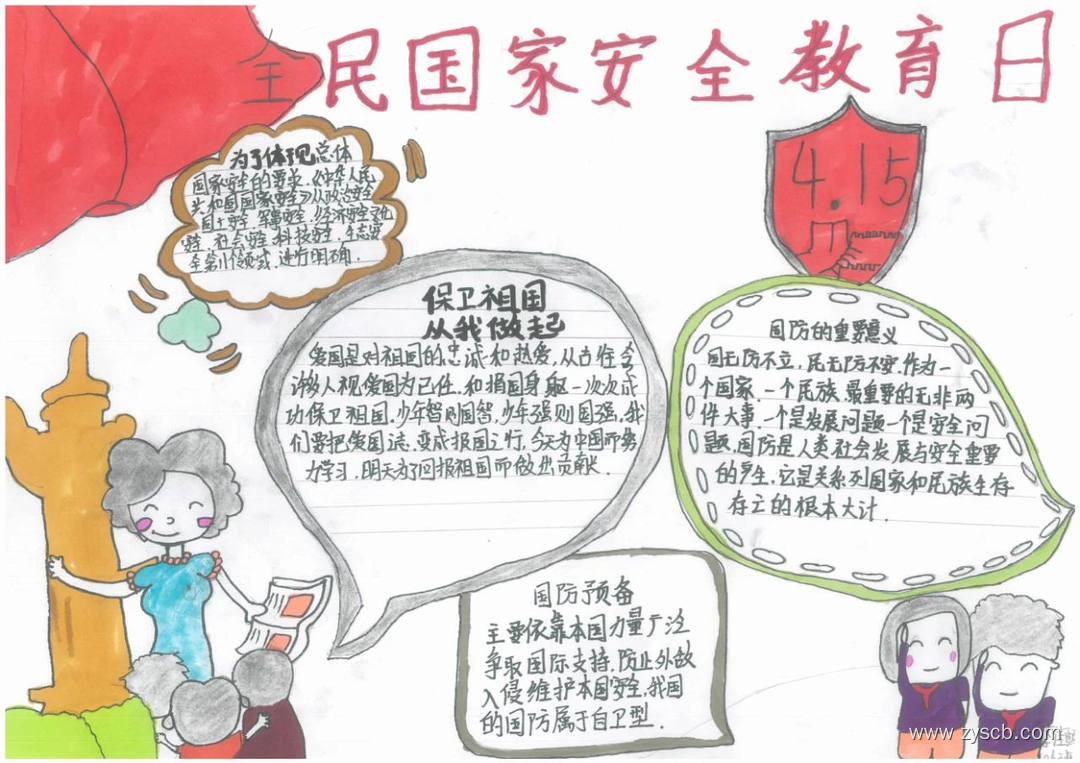 全民国家安全教育日
4.15
为了体现总体
国家安全的要求,《中华人民
共和国国家安全》从政治安全
国土安全、军事安全、经济安全、文化
安全、社会安全、科技安全、生态安
全第11个领域,进行明确.
保卫祖国
从我做起
爱国是对祖国的忠诚和热爱,从古往今
许多人视爱国为己任,和捐国身躯一次次成
功保卫祖国,少年智则国智,少年强则国强,我
们要把爱国 变成报国之行,今天为中国而努
力学习,明天为了回报祖国而做出贡献.
国防的重要意义
国无防不立,民无防不安,作为一
个国家、一个民族,最重要的无非两
件大事,一个是发展问题一个是安全问
题,国防是人类社会发展与安全重要
的产生,它是关系到国家和民族生存
存亡的根本大计.
国防预备
主要依靠本国力量广泛
争取国际支持,防止外敌
入侵维护本国安全,我国
的国防属于自卫型.
www.zyscb.com